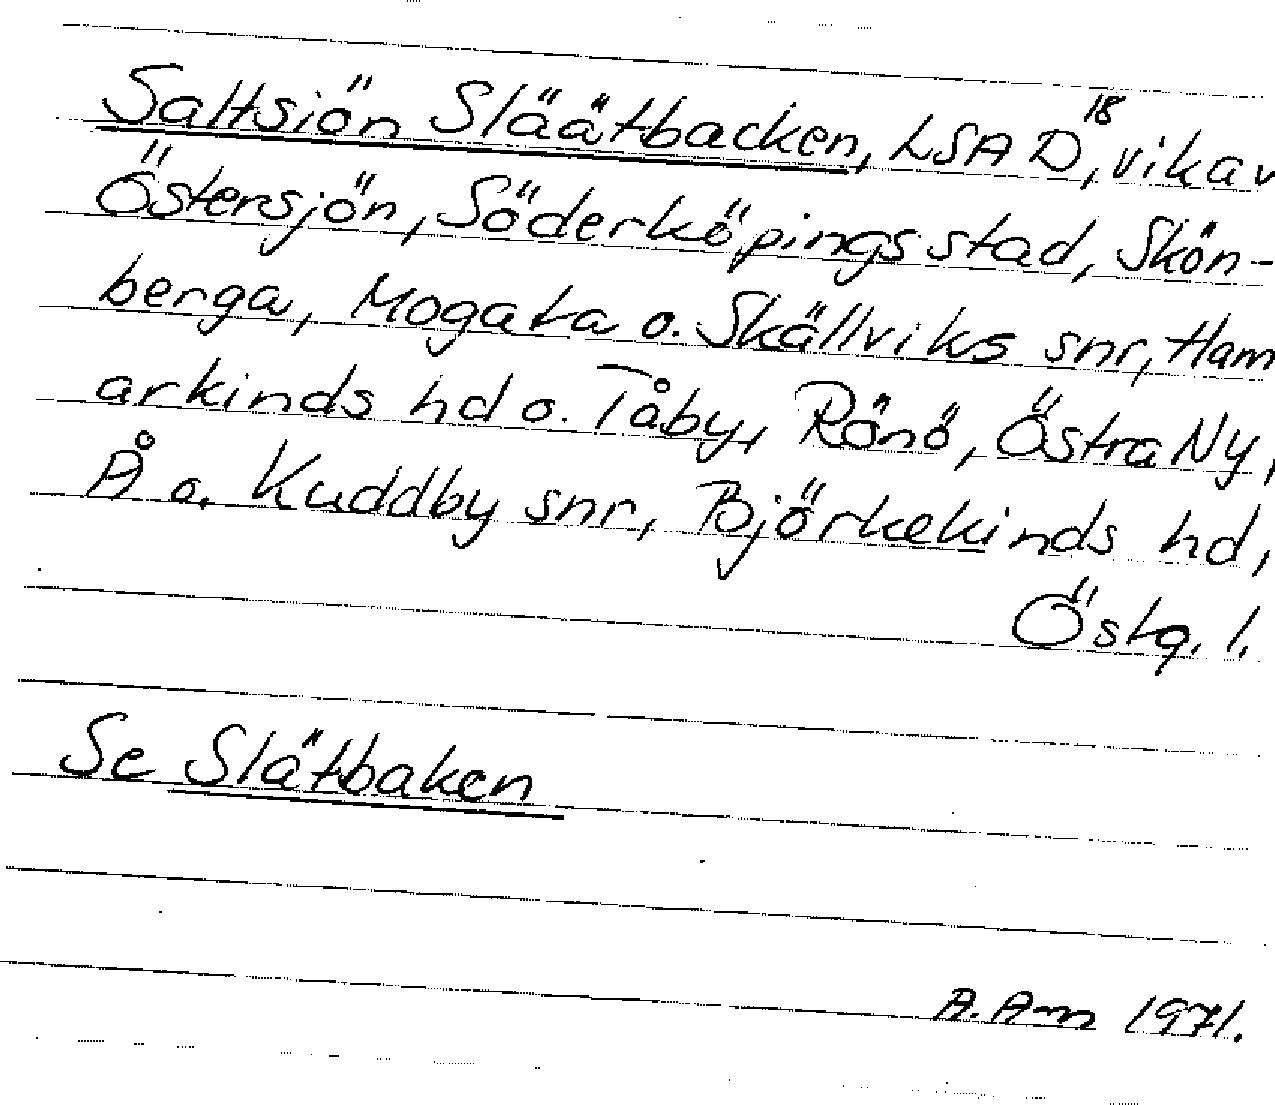 Saltsiön Släätbacken, LSA D18, vik av
Östersjön, Söderköpings stad, Skön-
berga, Mogata o. Skällviks snr, Ham
arkinds hd o. Tåby, Rönö, Östra Ny,
Å o. Kuddby snr, Björkekinds hd,
Östg. l.
Se Slätbaken
A. Am 1971.